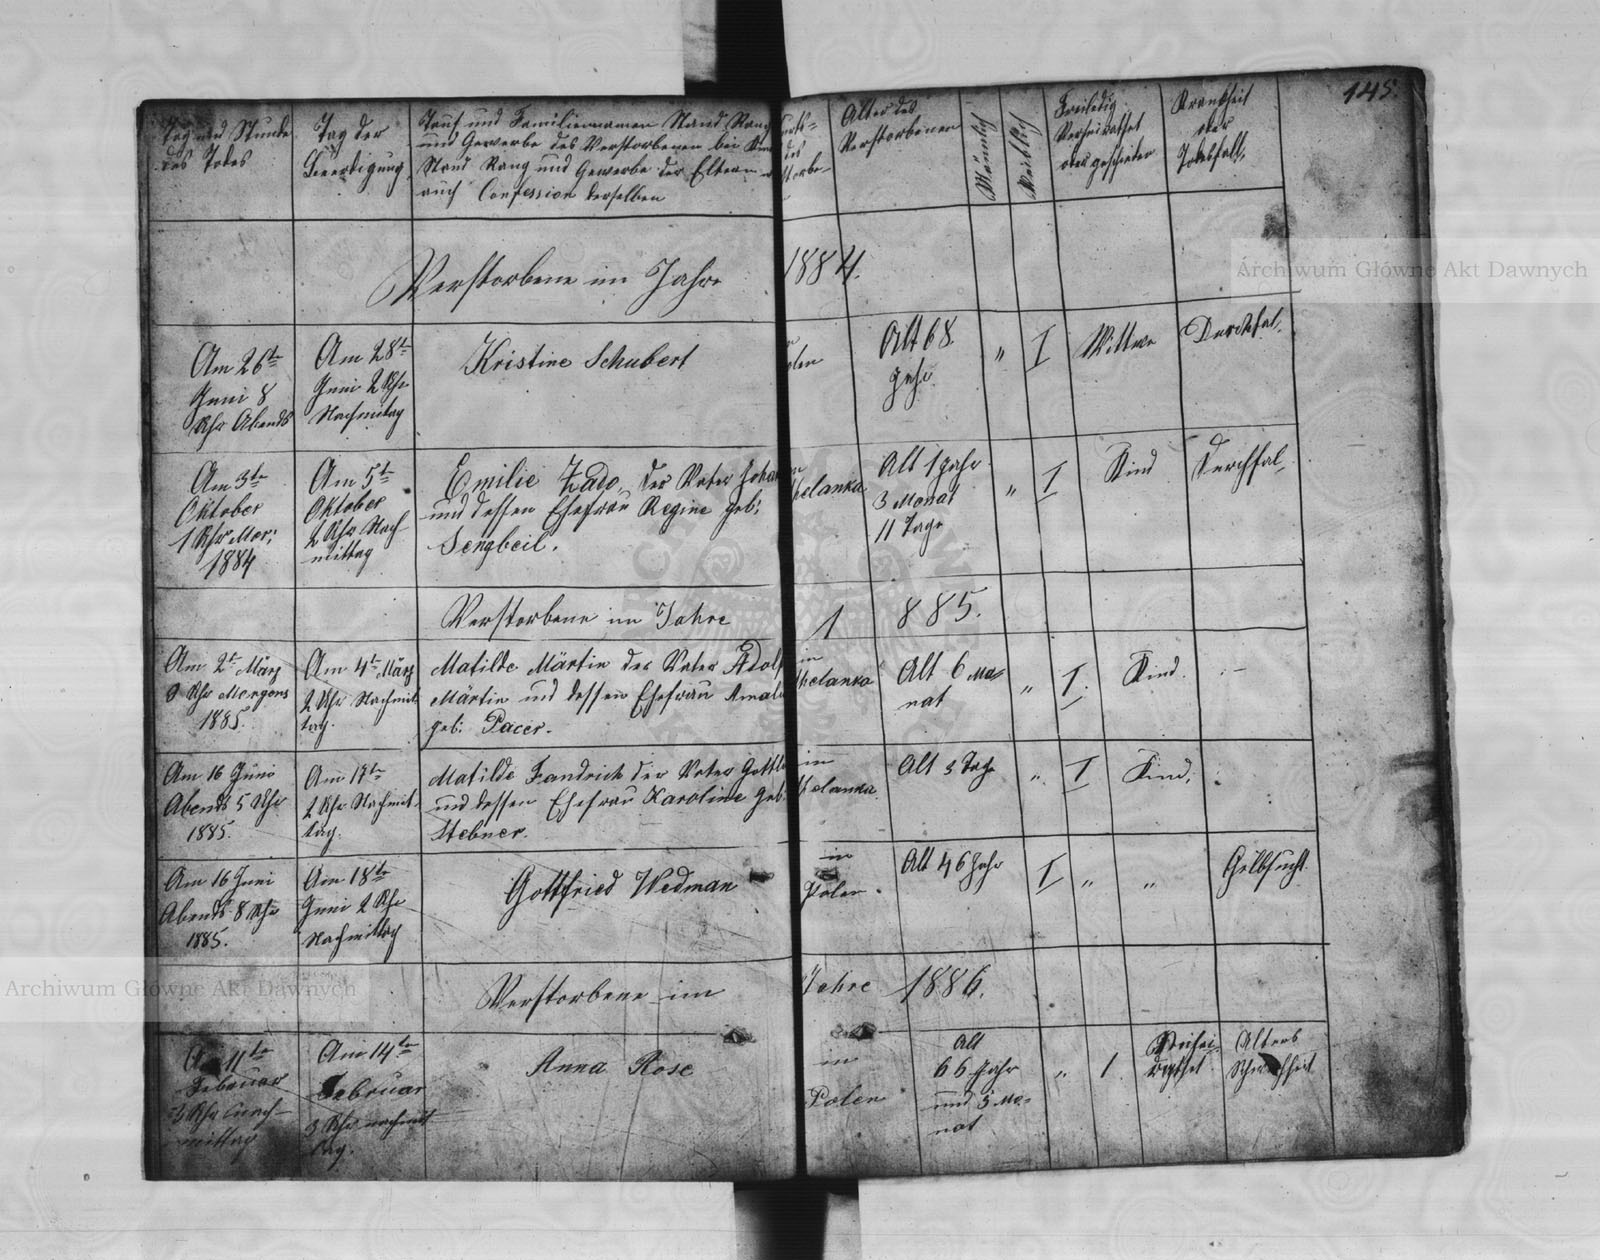 145.
Tag und Stunde
des Todes
Tag der
Beerdigung
Tauf und Familiennamen Stand Rang
und Gewerbe des Verstorbenen bei
Stand Rang und Gewerbe der Eltern
auch Confession derselben
Alter des
Verstorbenen
Männlich
Weiblich
Verheirathet
oder geschieden
Krankheit
oder
Todesfall
Verstorbene im Jahre 1884.
Am 26te
Juni 8
Uhr Abends
Am 28te
Juni 2 Uhr
Nachmitag
Kristine Schubert
Alt 68
Jahr
" I
Wittwe
Durchfal
Am 3te
Oktober
1 Uhr Mor:
1884
Am 5te
Oktober
2 Uhr Nach
mittag
Emilie Zado, der Vater Johan
und dessen Ehefrau Regine geb:
Sengbeil.
helanka
Alt 1 Jahr
3 Monat
11 Tage
" I
Kind
Durchfal
Verstorbene im Jahre 1885.
Am 2te März
9 Uhr Morgens
1885.
Am 4te März
2 Uhr Nachmit
tag.
Matilde Märtin der Vater Adolf
Märtin und dessen Ehefrau Amal
geb: Pacer.
in
helanka
Alt 6 Mo=
nat
" I.
Kind.
Am 16 Juni
Abends 5 Uhr
1885.
Am 17te
2 Uhr Nachmit
tag.
Matilde Fandrich der Vater Gottl
und dessen Ehefrau Karoline geb
Stebner.
in
helanka.
Alt 3 Tage
" I
Kind,
Am 16 Juni
Abends 8 Uhr
1885.
Am 18te
Juni 2 Uhr
Nachmittag
Gottfried Wedman
in
Polen.
Alt 46 Jahr
I " "
Gelbsucht
Verstorbene im Jahre 1886.
Am 11te
Februar
3 Uhr nach-
mittag
Am 14te
Februar
3 Uhr nachmit
tag.
Anna Rose
in
Polen
Alt
66 Jahr
und 5 Mo=
nat
" 1.
Verhei
rathet
Alters
Schwachheit
Archiwum Główne Akt Dawnych
Archiwum Główne Akt Dawnych